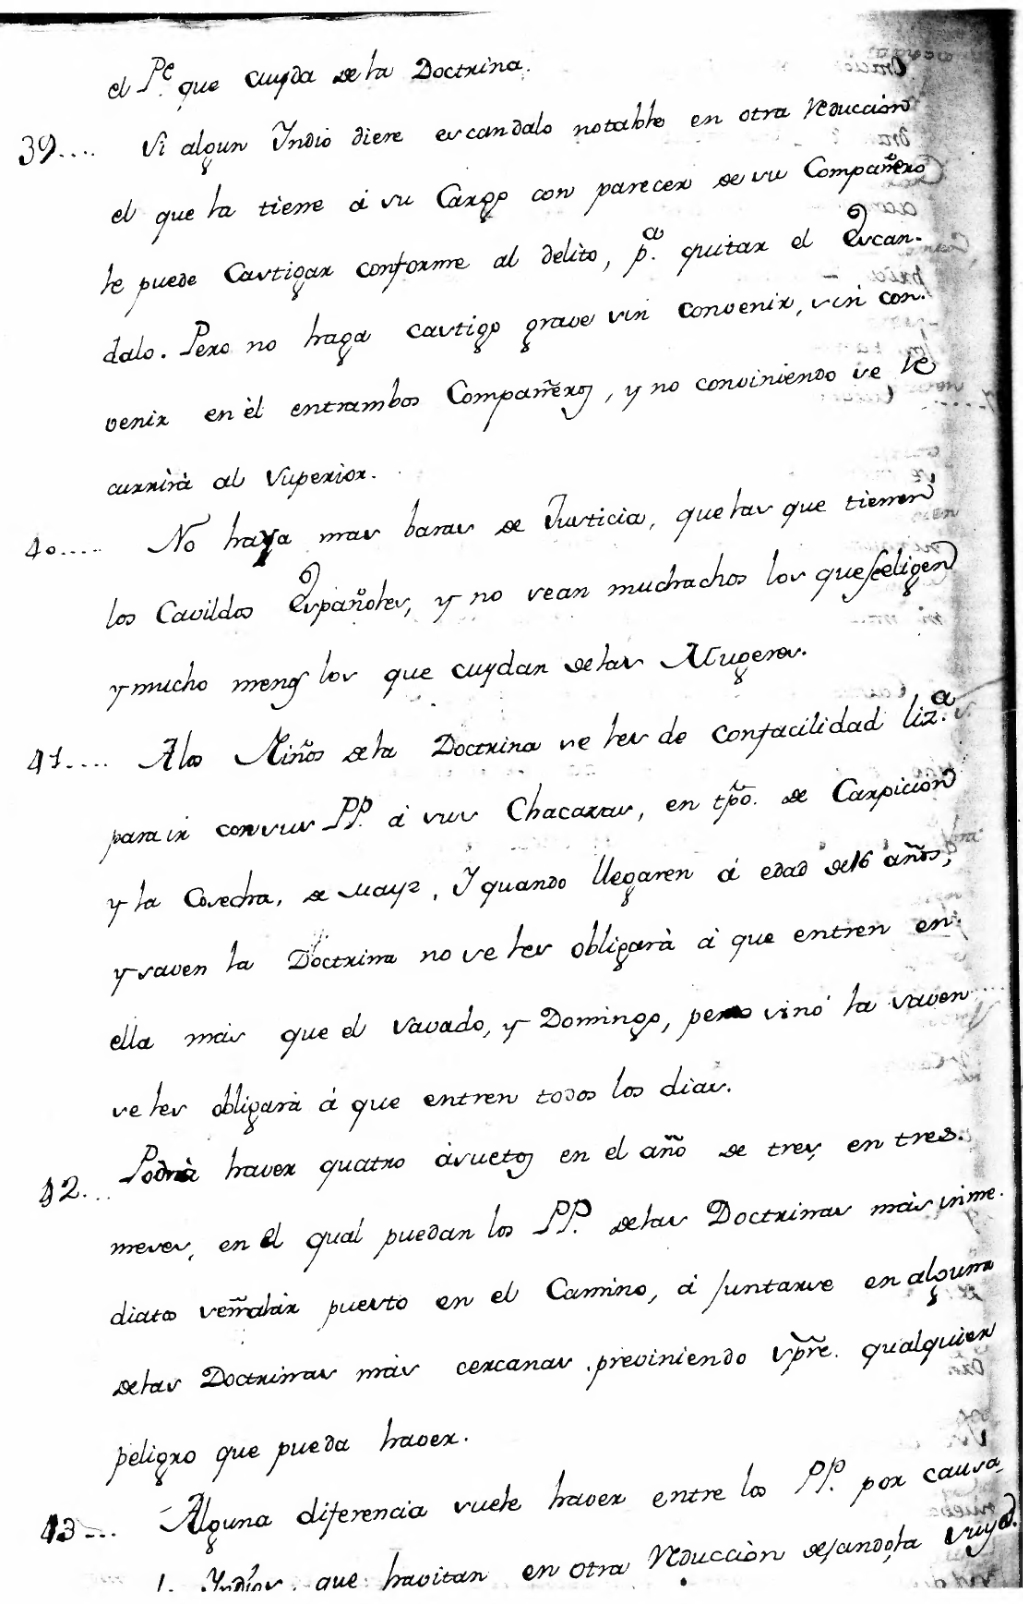 el P.e que cuyda de la Doctrina.
39.... Si algun Indio diere escandalo notable en otra Reducción
el que la tiene á su Cargo con parecer de su Compañero
le puede Castigar conforme al delito, p.a quitar el Escan-
dalo. Pero no haga castigo grave sin convenir, sin con-
venir en èl entrambos Compañeros, y no conviniendo se re
currirà al Superior.
40..... No haya mas baras de Justicia, que las que tienen
los Cavildos Españoles, y no sean muchachos los que se eligen
y mucho menos los que cuydan de las Mugeres.
41.... A los Niños de la Doctrina se les de con facilidad liz.a
para ir con sus PP. á sus Chacaras, en tpõ. de Carpición
y la Cosecha, de Mayz, Y quando llegaren á edad de 16 años,
y saven la Doctrina no se les obligarà á que entren en
ella más que el Savado, y Domingo, pero sinó la saven
se les obligarà á que entren todos los dias.
42... Podrà haver quatro ásuetos en el año de tres, en tres.
meses, en el qual puedan los PP. de las Doctrinas más inme-
diatas señalar puesto en el Camino, á juntarse en alguna
de las Doctrinas más cercanas, previniendo spre. qualquier
peligro que pueda haver.
43... Alguna diferencia suele haver entre los PP. por causa
Indios, que havitan en otra Reducción dejando la suya.